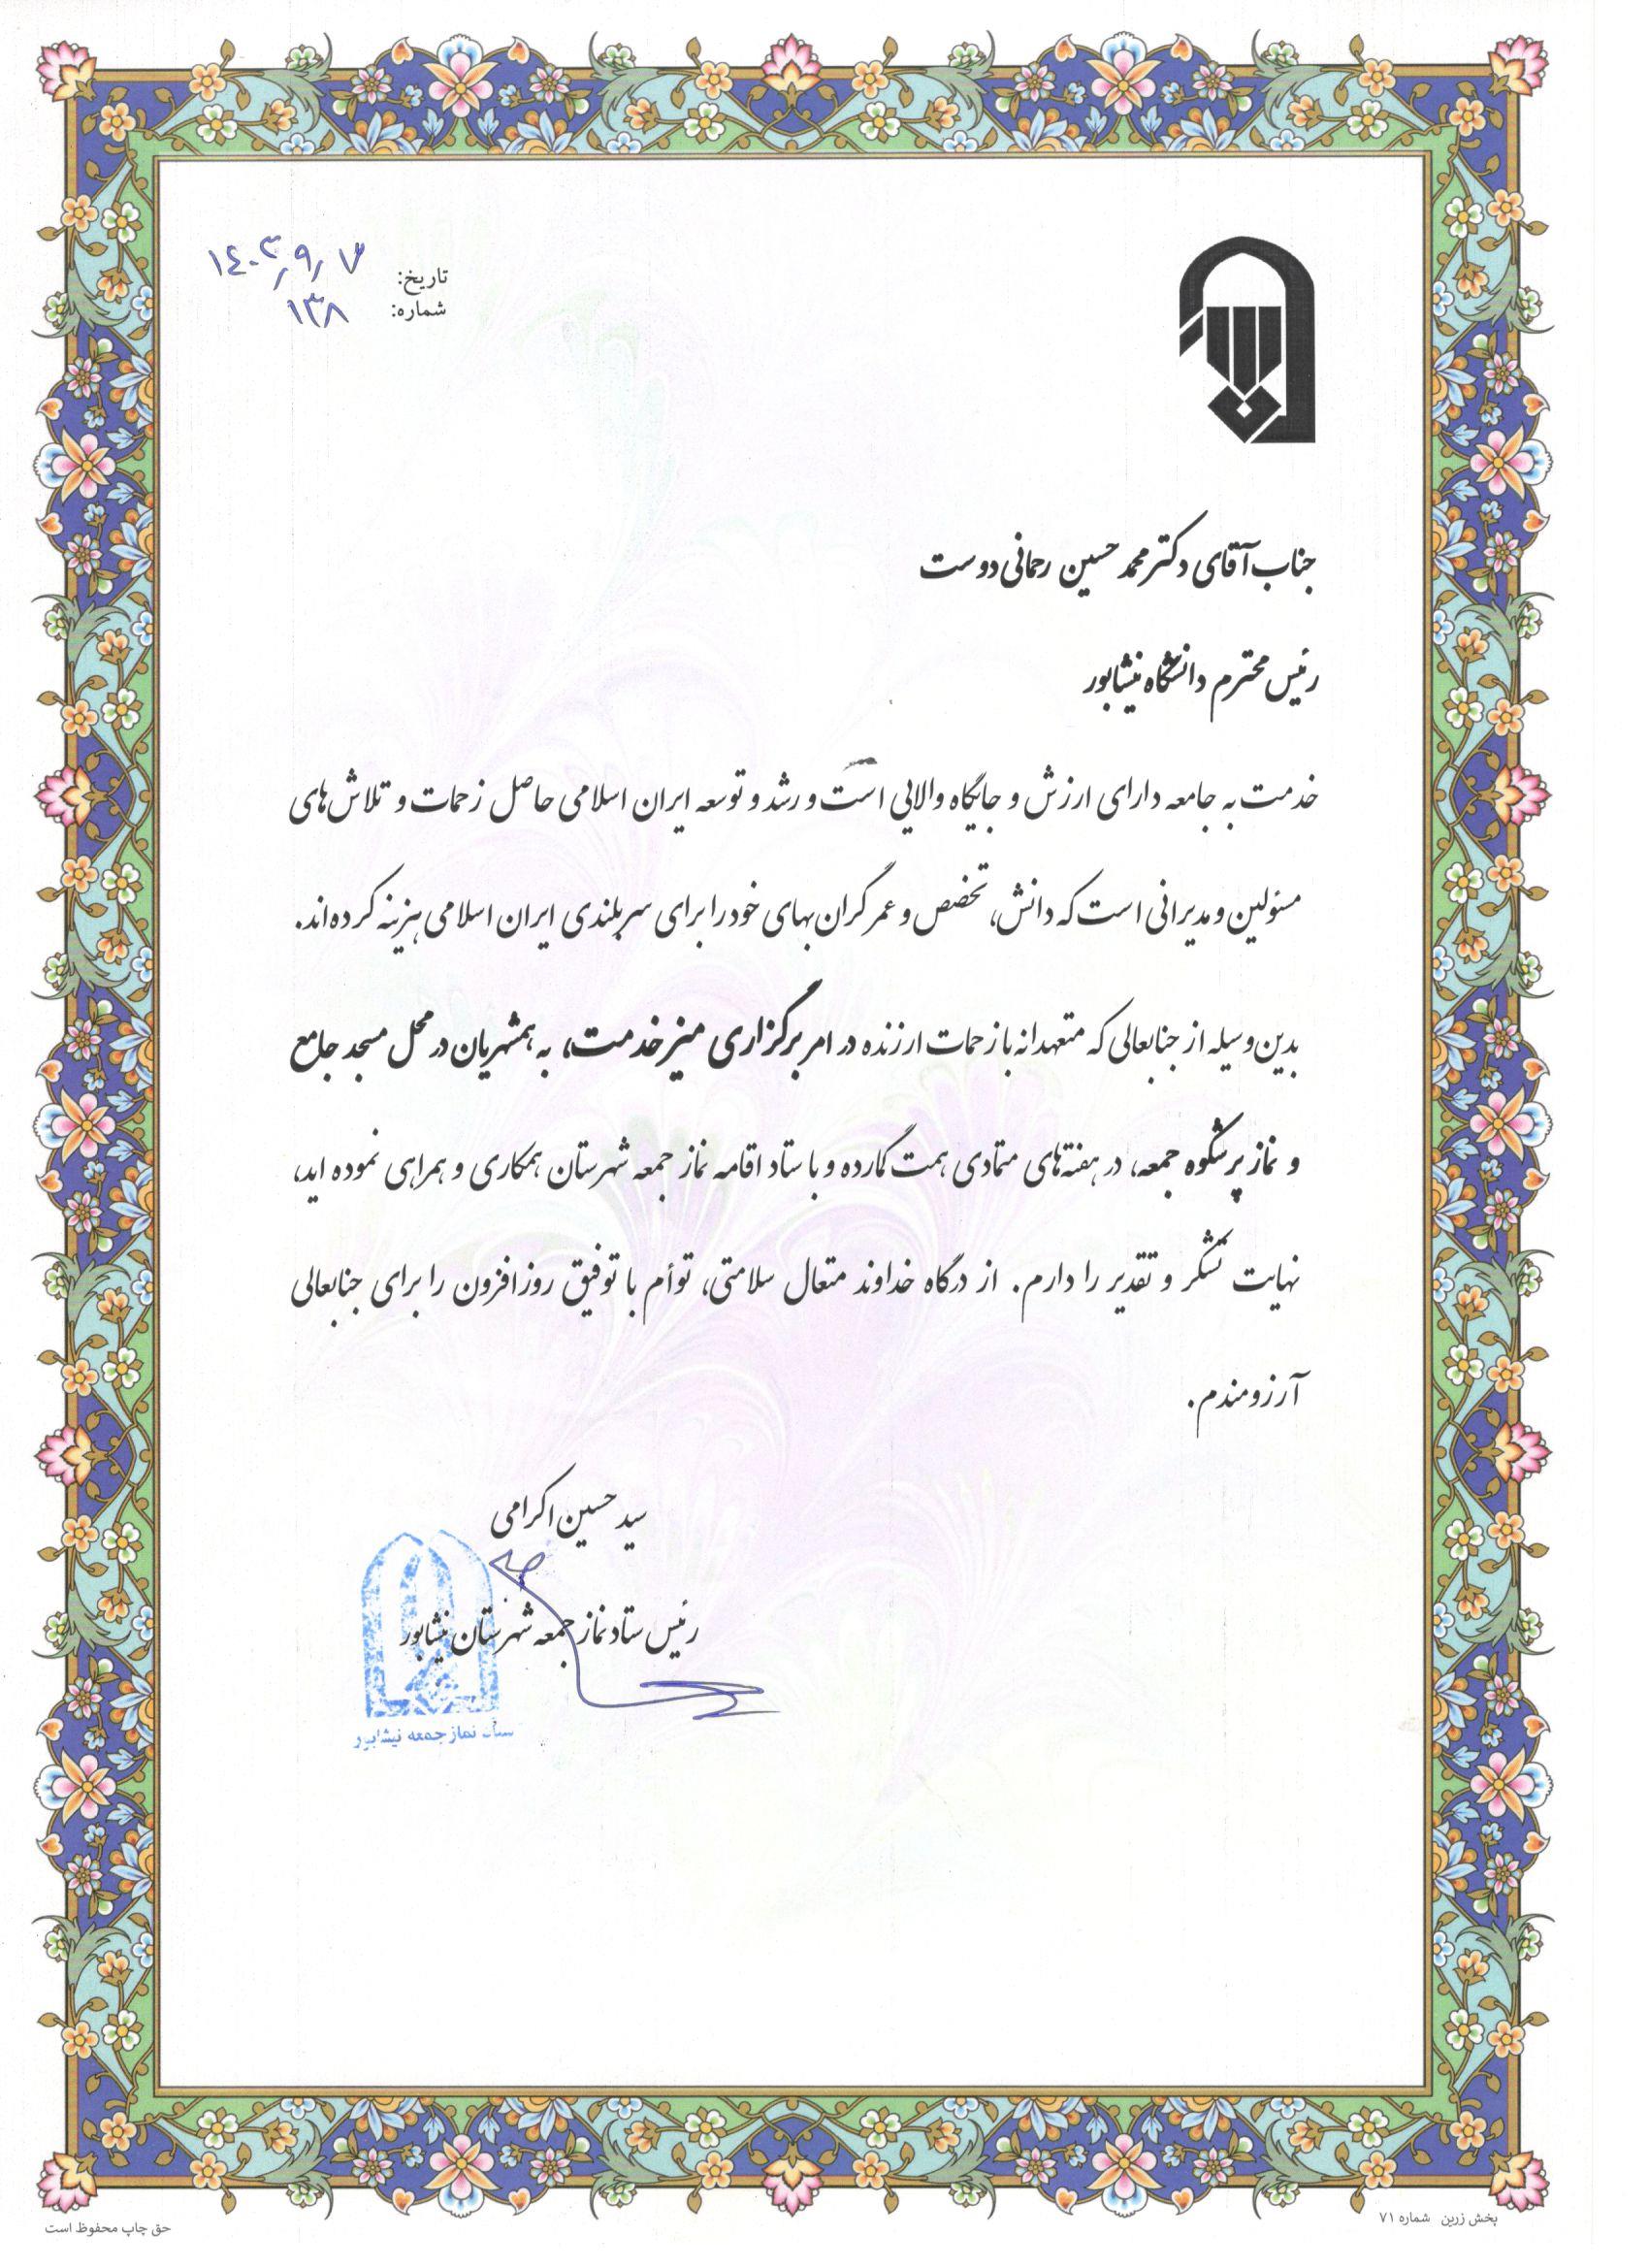 تاریخ: ۱۴۰۳/۹/۷
شماره: ۱۳۸
جناب آقای دکتر محمد حسین رحمانی دوست
رئیس محترم دانشگاه نیشابور
خدمت به جامعه دارای ارزش و جایگاه والایی است و رشد و توسعه ایران اسلامی حاصل زحمات و تلاش‌های
مسئولین و مدیرانی است که دانش، تخصص و عمر گران‌بهای خود را برای سربلندی ایران اسلامی هزینه کرده‌اند.
بدین‌وسیله از جنابعالی که متعهدانه با زحمات ارزنده در امر برگزاری میز خدمت، به همشهریان در محل مسجد جامع
و نماز پرشکوه جمعه، در هفته‌های متمادی همت گمارده و با ستاد اقامه نماز جمعه شهرستان همکاری و همراهی نموده اید،
نهایت تشکر و تقدیر را دارم. از درگاه خداوند متعال سلامتی، توأم با توفیق روزافزون را برای جنابعالی
آرزومندم.
سید حسین اکرامی
رئیس ستاد نماز جمعه شهرستان نیشابور
ستاد نماز جمعه نیشابور
پخش زرین شماره ۷۱
حق چاپ محفوظ است